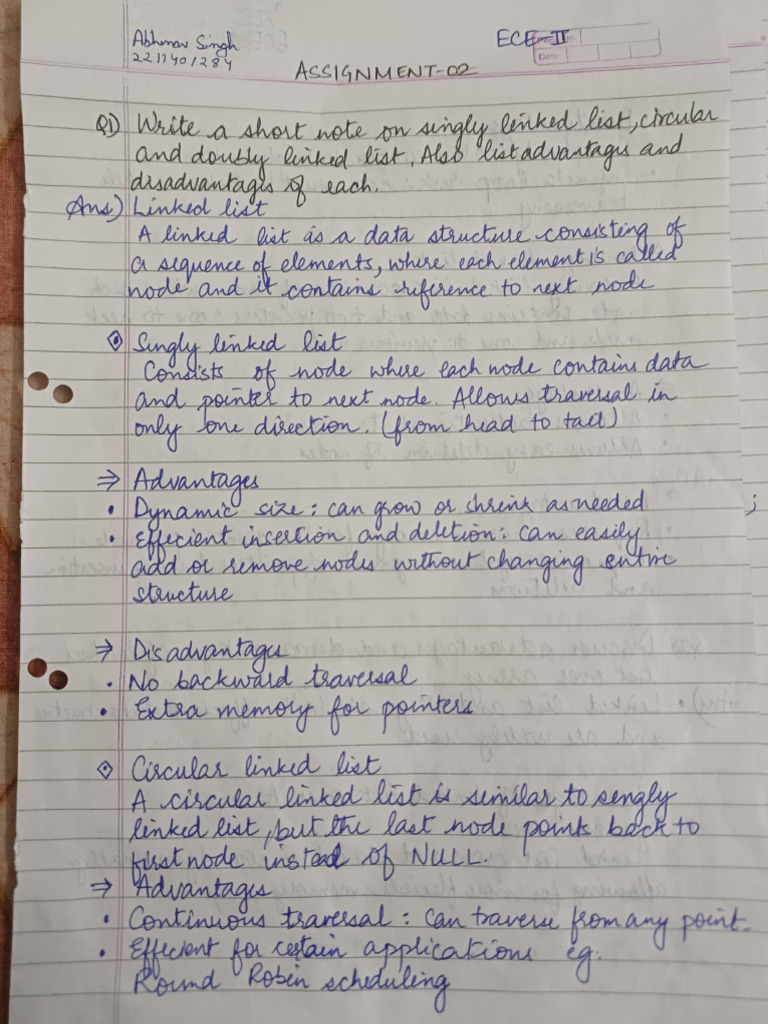 Abhinav Singh
2211401284
ECE-II
Date
ASSIGNMENT-02
Q1) Write a short note on singly linked list, circular
and doubly linked list, Also list advantages and
disadvantages of each.
Ans) Linked list
A linked list is a data structure consisting of
a sequence of elements, where each element is called
node and it contains reference to next node
Singly linked list
Consists of node where each node contains data
and pointer to next node. Allows traversal in
only one direction. (from head to tail)
⇒ Advantages
• Dynamic size: can grow or shrink as needed
• Effecient insertion and deletion: can easily
add or remove nodes without changing entire
structure
⇒ Disadvantages
• No backward traversal
• Extra memory for pointers
Circular linked list
A circular linked list is similar to sengly
linked list, but the last node points back to
first node instead of NULL.
⇒ Advantages
• Continuous traversal: can traverse from any point.
• Effecient for certain applications eg.
Round Robin scheduling